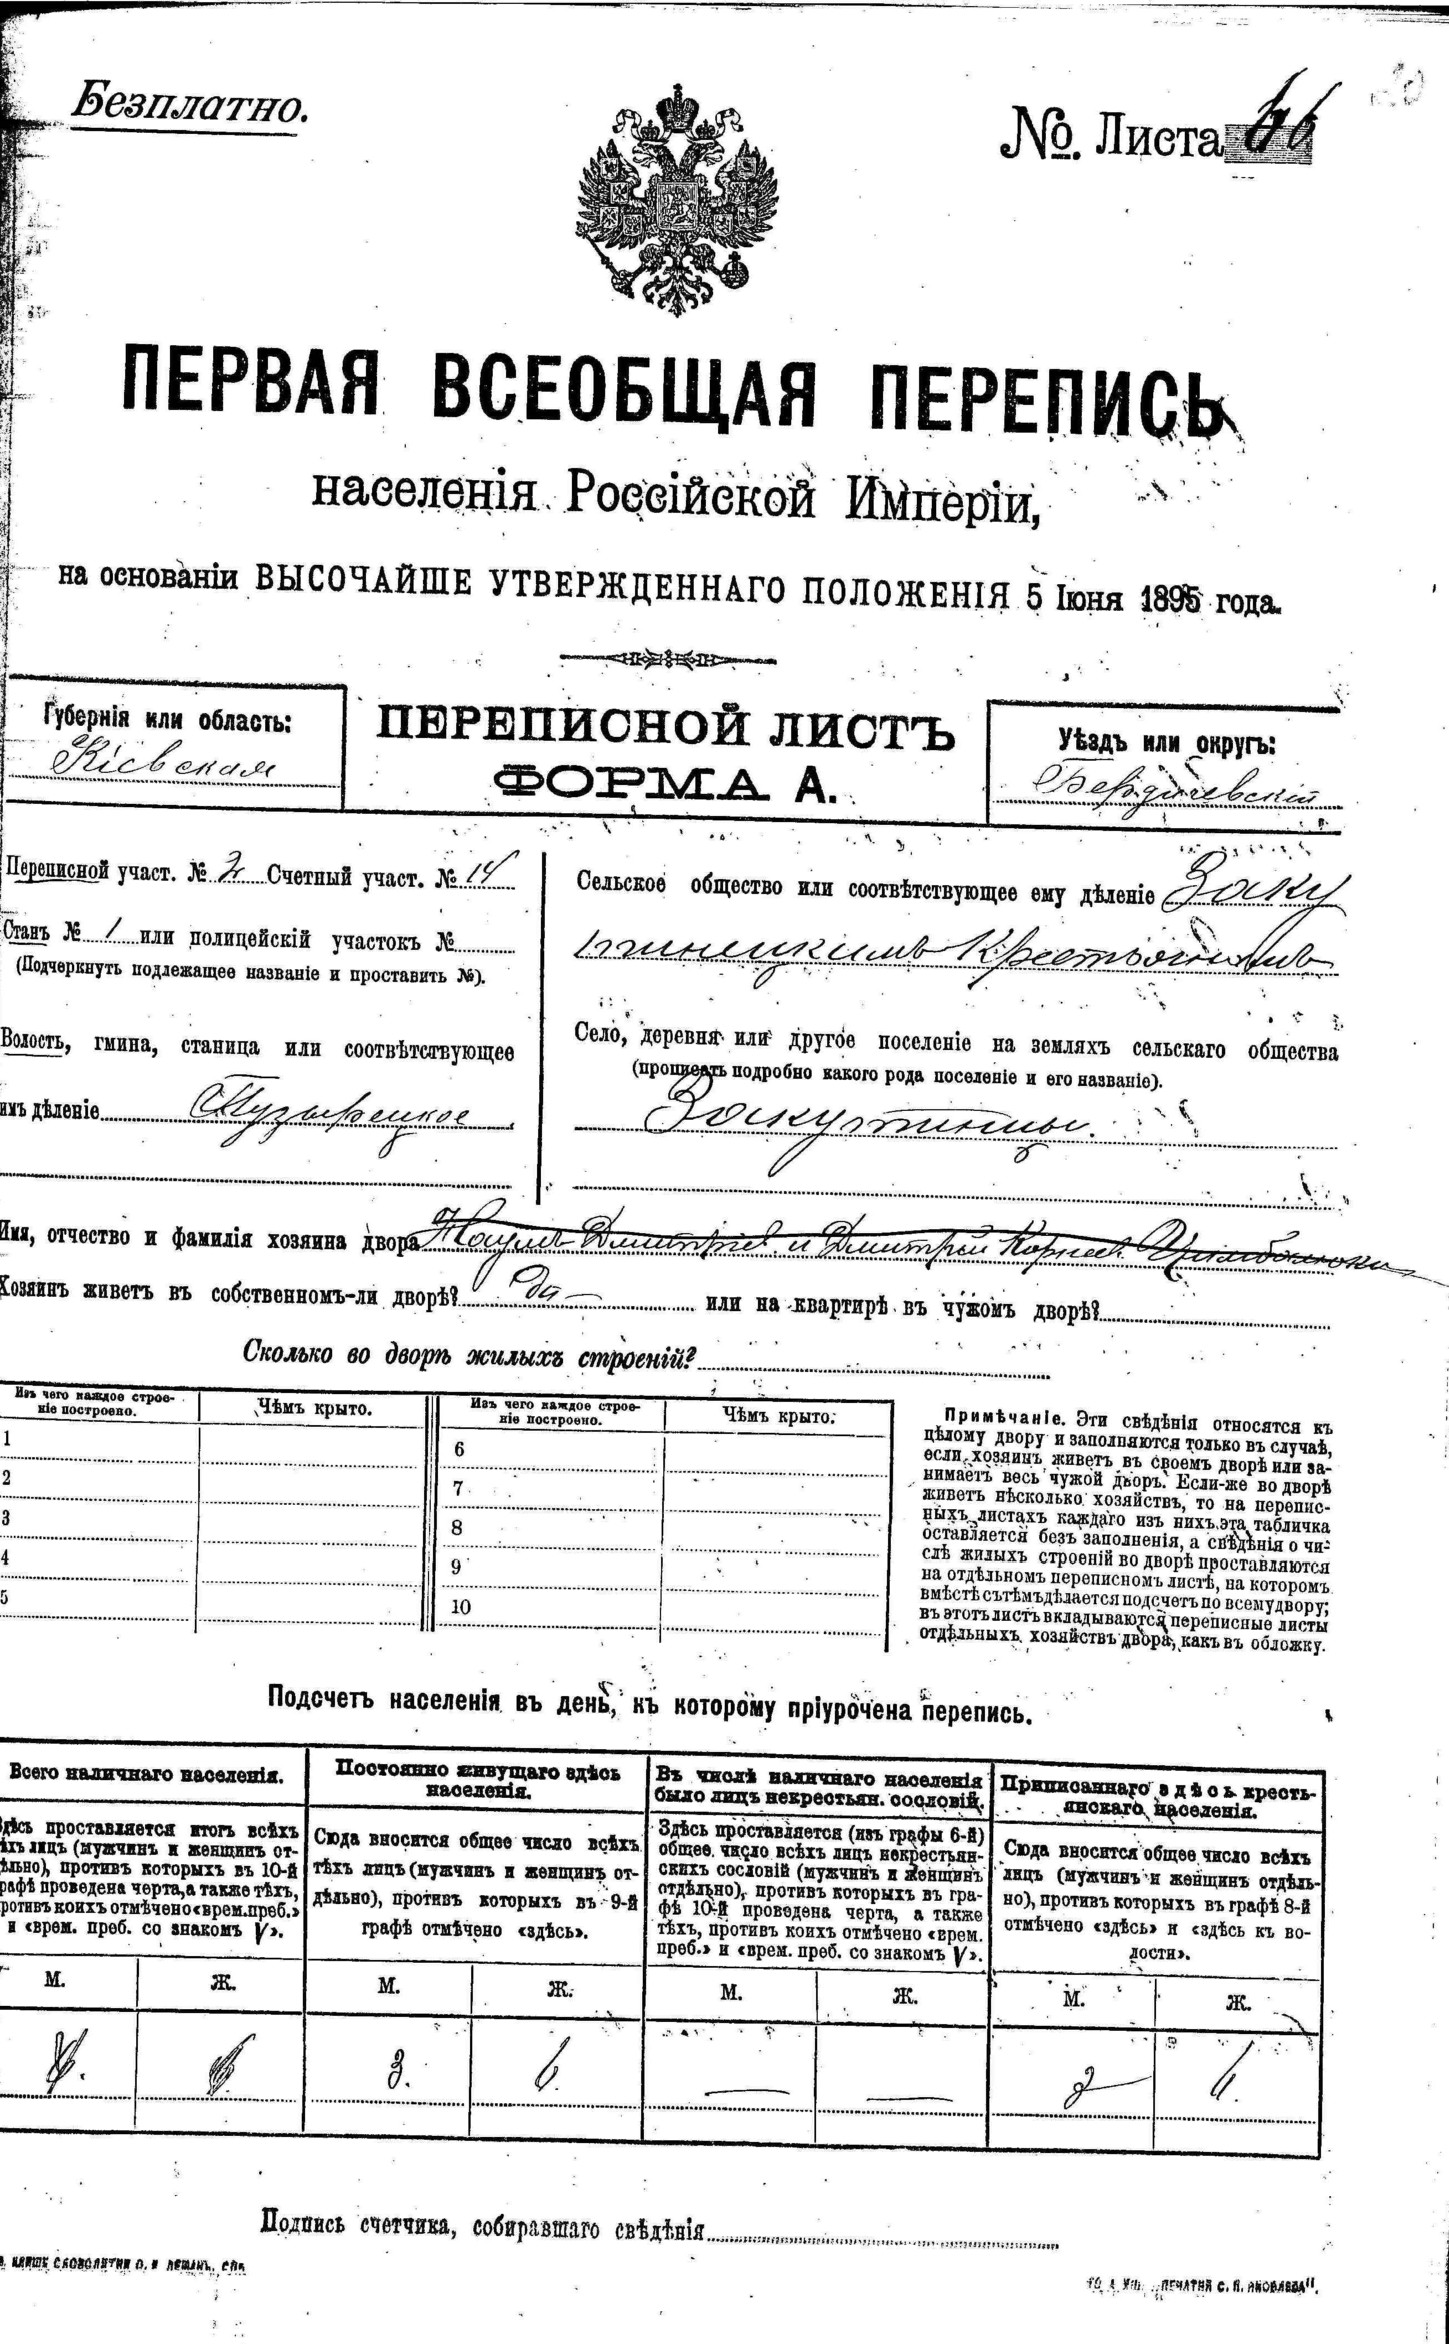 Безплатно.
№. Листа
ПЕРВАЯ ВСЕОБЩАЯ ПЕРЕПИСЬ
населенія Россійской Имперіи,
на основаніи ВЫСОЧАЙШЕ УТВЕРЖДЕННАГО ПОЛОЖЕНІЯ 5 Іюня 1895 года.
Губернія или область:
Кіевская
ПЕРЕПИСНОЙ ЛИСТЪ
ФОРМА А.
Уѣздъ или округъ:
Бердичевскій
Переписной участ. № 2 Счетный участ. № 14
Станъ № 1 или полицейскій участокъ №
(Подчеркнуть подлежащее названіе и проставить №).
Волость, гмина, станица или соотвѣтствующее
имъ дѣленіе
Сельское общество или соотвѣтствующее ему дѣленіе Заку
Село, деревня или другое поселеніе на земляхъ сельскаго общества
(прописать подробно какого рода поселеніе и его названіе).
Закутинцы.
Имя, отчество и фамилія хозяина двора Наумъ Дмитріев. и Дмитрій Корнеев.
Хозяинъ живетъ въ собственномъ-ли дворѣ? да или на квартирѣ въ чужомъ дворѣ?
Сколько во дворѣ жилыхъ строеній?
Изъ чего каждое строе-
ніе построено.
Чѣмъ крыто.
Изъ чего каждое строе-
ніе построено.
Чѣмъ крыто.
1
2
3
4
5
6
7
8
9
10
Примѣчаніе. Эти свѣдѣнія относятся къ
цѣлому двору и заполняются только въ случаѣ,
если хозяинъ живетъ въ своемъ дворѣ или за-
нимаетъ весь чужой дворъ. Если-же во дворѣ
живетъ нѣсколько хозяйствъ, то на перепис-
ныхъ листахъ каждаго изъ нихъ эта табличка
оставляется безъ заполненія, а свѣдѣнія о чи-
слѣ жилыхъ строеній во дворѣ проставляются
на отдѣльномъ переписномъ листѣ, на которомъ
вмѣстѣ съ тѣмъ дѣлается подсчетъ по всему двору;
въ этотъ листъ вкладываются переписные листы
отдѣльныхъ хозяйствъ двора, какъ въ обложку.
Подсчетъ населенія въ день, къ которому пріурочена перепись.
Всего наличнаго населенія.
Здѣсь проставляется итогъ всѣхъ
тѣхъ лицъ (мужчинъ и женщинъ от-
дѣльно), противъ которыхъ въ 10-й
графѣ проведена черта, а также тѣхъ,
противъ коихъ отмѣчено «врем. преб.»
и «врем. преб. со знакомъ V».
М. Ж.
Постоянно живущаго здѣсь
населенія.
Сюда вносится общее число всѣхъ
тѣхъ лицъ (мужчинъ и женщинъ от-
дѣльно), противъ которыхъ въ 9-й
графѣ отмѣчено «здѣсь».
М. Ж.
3. 6.
Въ числѣ наличнаго населенія
было лицъ некрестьян. сословій.
Здѣсь проставляется (изъ графы 6-й)
общее число всѣхъ лицъ некрестьян-
скихъ сословій (мужчинъ и женщинъ
отдѣльно), противъ которыхъ въ гра-
фѣ 10-й проведена черта, а также
тѣхъ, противъ коихъ отмѣчено «врем.
преб.» и «врем. преб. со знакомъ V».
М. Ж.
— —
Приписаннаго здѣсь кресть-
янскаго населенія.
Сюда вносится общее число всѣхъ
лицъ (мужчинъ и женщинъ отдѣль-
но), противъ которыхъ въ графѣ 8-й
отмѣчено «здѣсь» и «здѣсь къ во-
лости».
М. Ж.
Подпись счетчика, собиравшаго свѣдѣнія
ПЕЧАТНЯ С. П. ЯКОВЛЕВА".